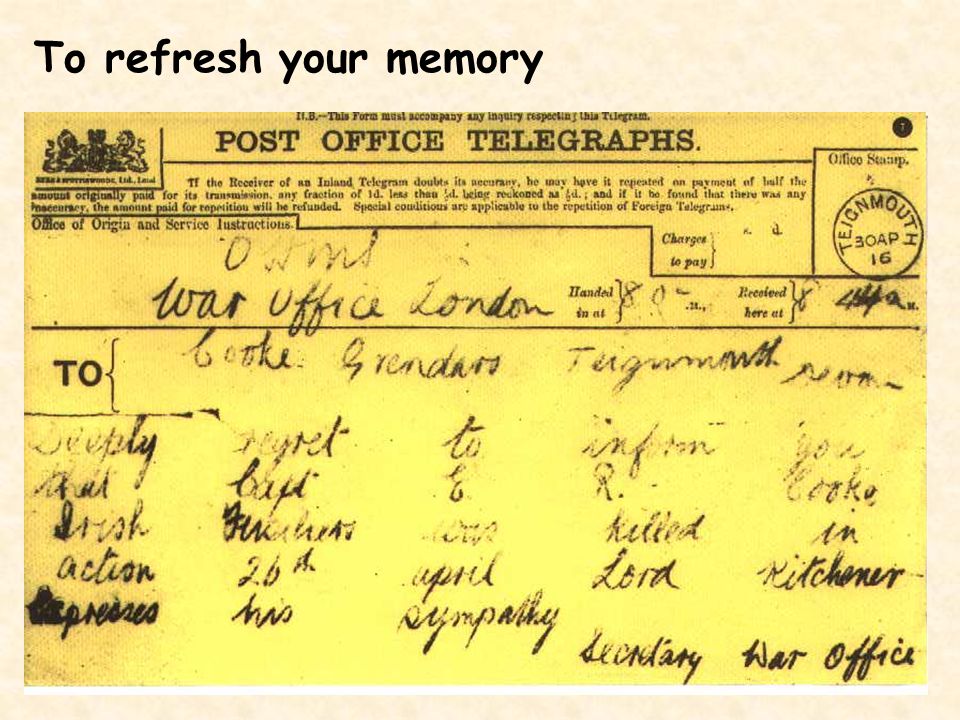 To refresh your memory
N.B.—This Form must accompany any inquiry respecting this Telegram.
POST OFFICE TELEGRAPHS.
If the Receiver of an Inland Telegram doubts its accuracy, he may have it repeated on payment of half the
amount originally paid for its transmission, any fraction of 1d. less than ½d. being reckoned as ½d.; and if it be found that there was any
inaccuracy, the amount paid for repetition will be refunded. Special conditions are applicable to the repetition of Foreign Telegrams.
Office Stamp.
TEIGNMOUTH
30 AP
16
Office of Origin and Service Instructions.
Charges to pay
s. d.
OHMS
War Office London
Handed in at 8 0 M.,
Received here at 8 44a M.
TO
Cooke Teignmouth Devon
Deeply regret to inform you
that Capt E. R. Cooke
Irish Fusiliers was killed in
action 26th april Lord Kitchener
Expresses his sympathy
Secretary War Office